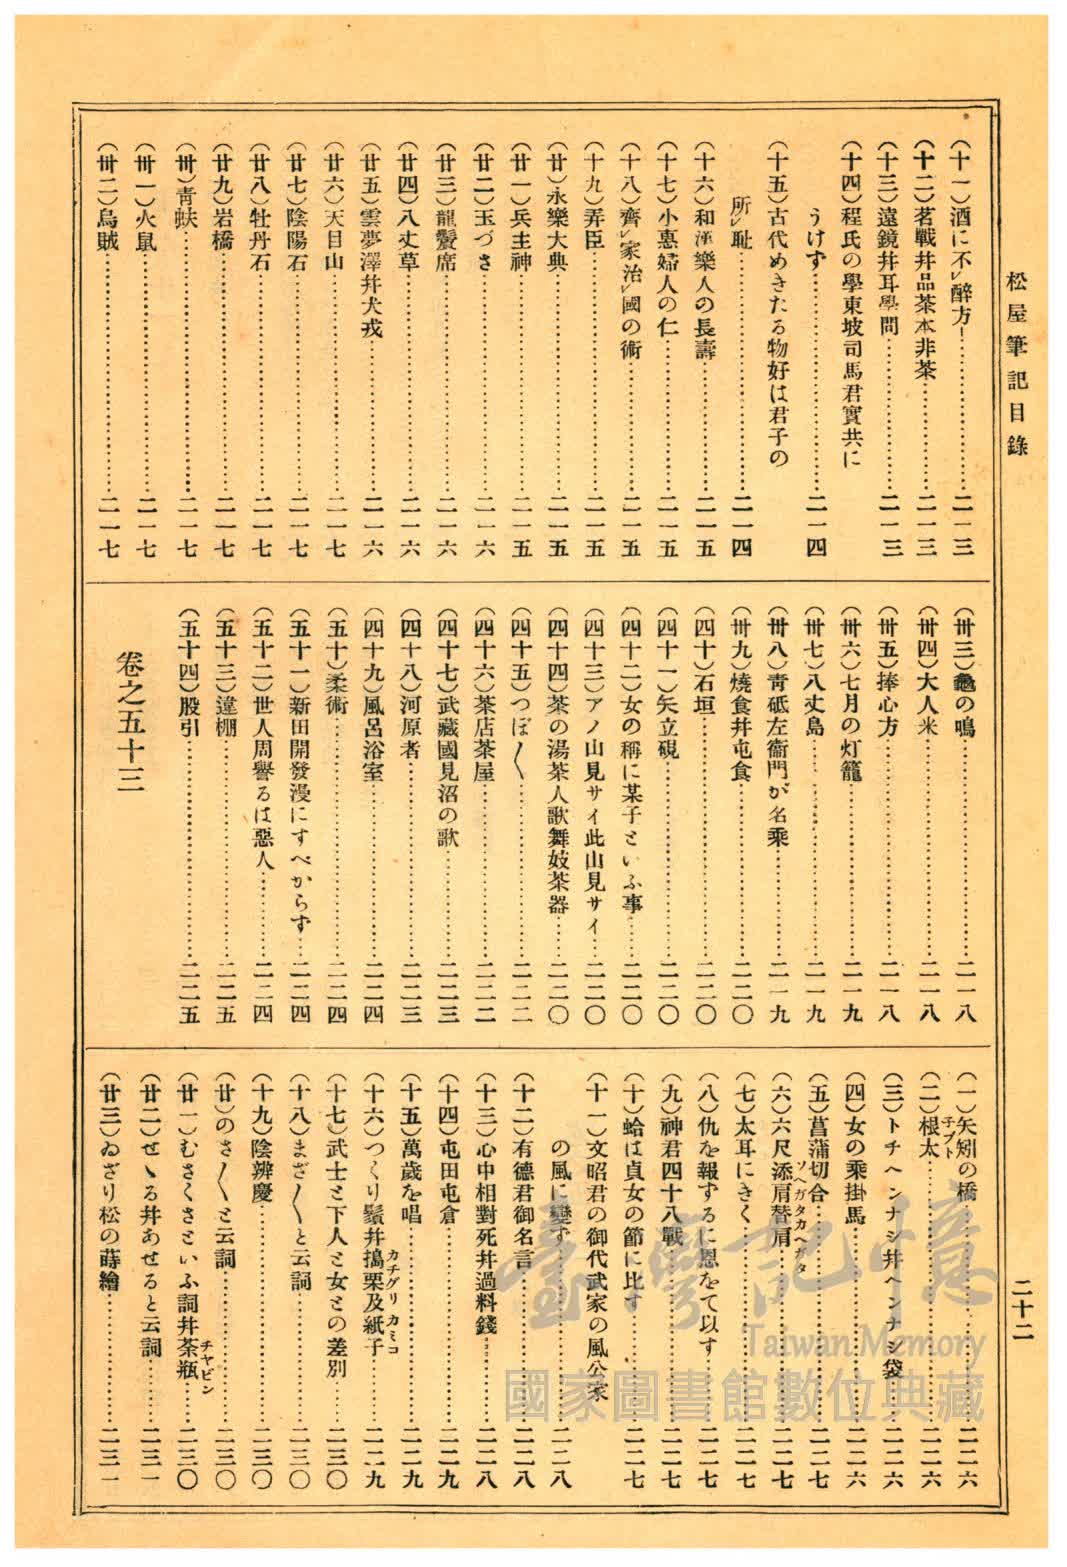 松屋筆記目錄
(十一)酒に不レ醉方…………二一三
(十二)茗戰幷品茶本非茶…………二一三
(十三)遠鏡幷耳學問…………二一三
(十四)程氏の學東坡司馬君實共に
うけず…………二一四
(十五)古代めきたる物好は君子の
所レ耻…………二一四
(十六)和漢樂人の長壽…………二一五
(十七)小惠婦人の仁…………二一五
(十八)齊レ家治レ國の術…………二一五
(十九)弄臣…………二一五
(廿)永樂大典…………二一五
(廿一)兵主神…………二一五
(廿二)玉づさ…………二一六
(廿三)龍鬢席…………二一六
(廿四)八丈草…………二一六
(廿五)雲夢澤幷犬戎…………二一六
(廿六)天目山…………二一七
(廿七)陰陽石…………二一七
(廿八)牡丹石…………二一七
(廿九)岩橋…………二一七
(卅)靑蚨…………二一七
(卅一)火鼠…………二一七
(卅二)烏賊…………二一七
(卅三)龜の鳴…………二一八
(卅四)大人米…………二一八
(卅五)捧心方…………二一八
(卅六)七月の灯籠…………二一九
(卅七)八丈島…………二一九
(卅八)靑砥左衞門が名乘…………二一九
(卅九)燒食幷屯食…………二二〇
(四十)石垣…………二二〇
(四十一)矢立硯…………二二〇
(四十二)女の稱に某子といふ事…………二二〇
(四十三)アノ山見サイ此山見サイ…………二二〇
(四十四)茶の湯茶人歌舞妓茶器…………二二〇
(四十五)つぼ〳〵…………二二二
(四十六)茶店茶屋…………二二二
(四十七)武藏國見沼の歌…………二二三
(四十八)河原者…………二二三
(四十九)風呂浴室…………二二四
(五十)柔術…………二二四
(五十一)新田開發漫にすべからず…………二二四
(五十二)世人周譽るは惡人…………二二四
(五十三)違棚…………二二五
(五十四)股引…………二二五
卷之五十三
(一)矢矧の橋…………二二六
(二)根太…………二二六
ネブト
(三)トチヘンナシ幷ヘンナシ袋…………二二六
(四)女の乘掛馬…………二二六
(五)菖蒲切合…………二二七
(六)六尺添肩替肩…………二二七
ソヘガタカヘガタ
(七)太耳にきく…………二二七
(八)仇を報ずるに恩をて以す…………二二七
(九)神君四十八戰…………二二七
(十)蛤は貞女の節に比す…………二二七
(十一)文昭君の御代武家の風公家
の風に變ず…………二二八
(十二)有德君御名言…………二二八
(十三)心中相對死幷過料錢…………二二八
(十四)屯田屯倉…………二二九
(十五)萬歲を唱…………二二九
(十六)つくり鬚幷搗栗及紙子…………二二九
カチグリ カミコ
(十七)武士と下人と女との差別…………二三〇
(十八)まざ〳〵と云詞…………二三〇
(十九)陰辨慶…………二三〇
(廿)のさ〳〵と云詞…………二三〇
(廿一)むさくさといふ詞幷茶瓶…………二三〇
チヤビン
(廿二)せゝる幷あせると云詞…………二三一
(廿三)ゐざり松の蒔繪…………二三一
二十二
臺灣記憶
Taiwan Memory
國家圖書館數位典藏